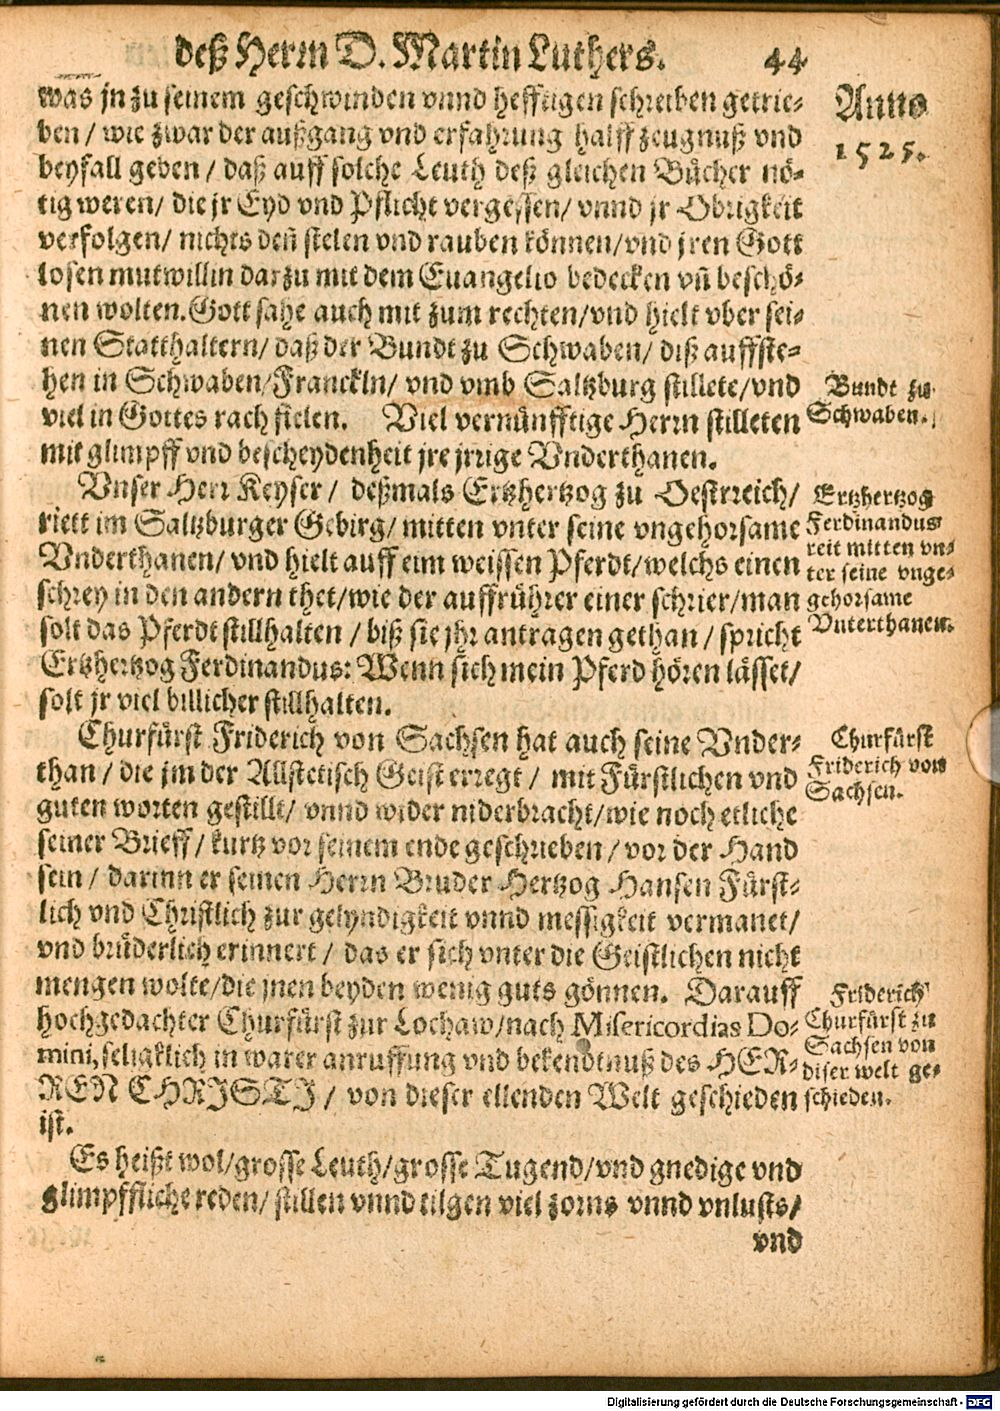 deß Herrn D. Martin Luthers. 44
was jn zu seinem geschwinden vnnd hefftigen schreiben getrie-
ben / wie zwar der außgang vnd erfahrung halff zeugnuß vnd
beyfall geben / daß auff solche Leuth deß gleichen Bücher nö-
tig weren / die jr Eyd vnd Pflicht vergessen / vnnd jr Obrigkeit
verfolgen / nichts den̄ stelen vnd rauben können / vnd jren Gott
losen mutwillin darzu mit dem Euangelio bedecken vn̄ beschö-
nen wolten. Gott sahe auch mit zum rechten / vnd hielt vber sei-
nen Statthaltern / daß der Bundt zu Schwaben / diß auffste-
hen in Schwaben / Franckln / vnd vmb Saltzburg stillete / vnd
viel in Gottes rach fielen. Viel vernünfftige Herrn stilleten
mit glimpff vnd bescheydenheit jre jrrige Vnderthanen.
Vnser Herr Keyser / deßmals Ertzhertzog zu Oestrreich /
riett im Saltzburger Gebirg / mitten vnter seine vngehorsame
Vnderthanen / vnd hielt auff eim weissen Pferdt / welchs einen
schrey in den andern thet / wie der auffrührer einer schrier / man
solt das Pferdt stillhalten / biß sie jhr antragen gethan / spricht
Ertzhertzog Ferdinandus: Wenn sich mein Pferd hören lässet /
solt jr viel billicher stillhalten.
Churfürst Friderich von Sachsen hat auch seine Vnder-
than / die jm der Allstetisch Geist erregt / mit Fürstlichen vnd
guten worten gestillt / vnnd wider niderbracht / wie noch etliche
seiner Brieff / kurtz vor seinem ende geschrieben / vor der Hand
sein / darinn er seinen Herrn Bruder Hertzog Hansen Fürst-
lich vnd Christlich zur gelyndigkeit vnnd messigkeit vermanet /
vnd brüderlich erinnert / das er sich vnter die Geistlichen nicht
mengen wolte / die jnen beyden wenig guts gönnen. Darauff
hochgedachter Churfürst zur Lochaw / nach Misericordias Do-
mini, seligklich in warer anruffung vnd bekendtnuß des HER-
REN CHRISTI / von dieser ellenden Welt geschieden
ist.
Es heißt wol / grosse Leuth / grosse Tugend / vnd gnedige vnd
glimpffliche reden / stillen vnnd tilgen viel zorns vnnd vnlusts /
vnd
Anno
1525.
Bundt zu
Schwaben.
Ertzhertzog
Ferdinandus
reit mitten vn-
ter seine vnge-
gehorsame
Vnterthanen.
Churfürst
Friderich von
Sachsen.
Friderich
Churfürst zu
Sachsen von
diser welt ge-
schieden.
Digitalisierung gefördert durch die Deutsche Forschungsgemeinschaft - DFG